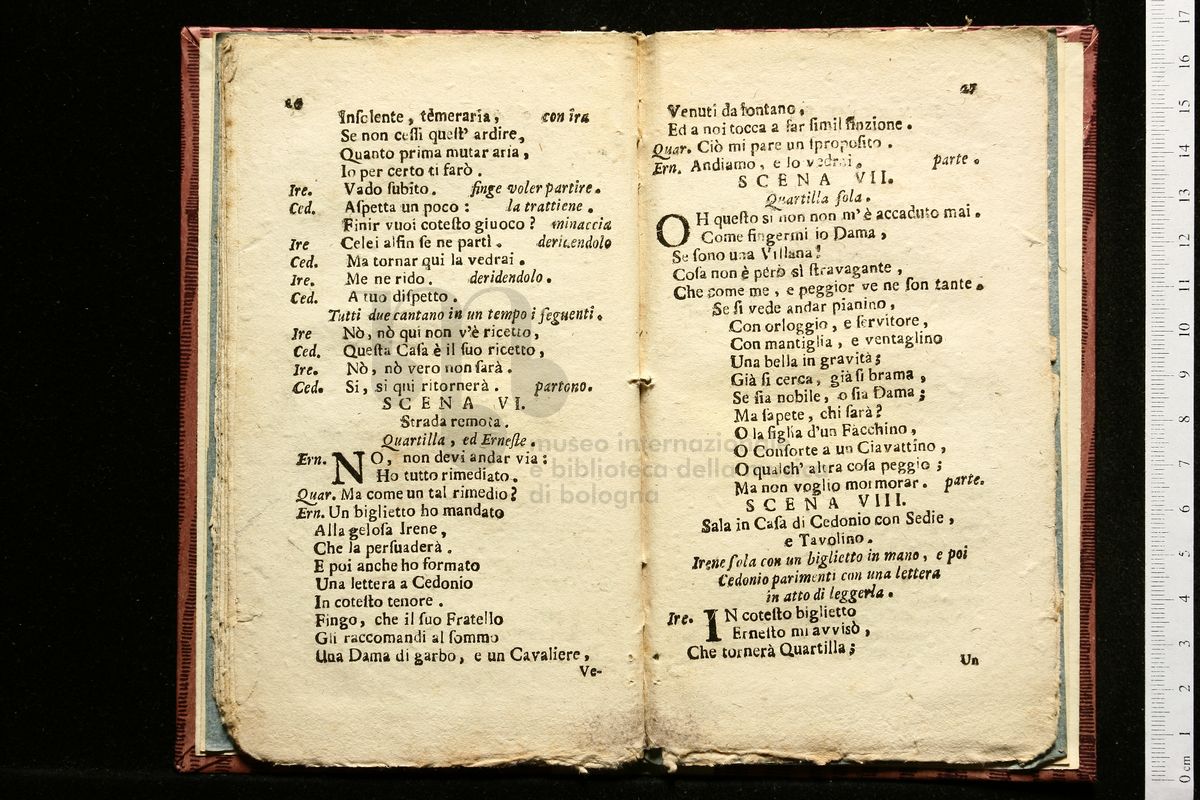 26
Insolente, temeraria, con ira
Se non cessi quest' ardire,
Quanto prima mutar aria,
Io per certo ti farò.
Ire. Vado subito. finge voler partire.
Ced. Aspetta un poco: la trattiene.
Finir vuoi cotesto giuoco? minaccia
Ire Celei alfin se ne partì. deridendolo
Ced. Ma tornar qui la vedrai.
Ire. Me ne rido. deridendolo.
Ced. A tuo dispetto.
Tutti due cantano in un tempo i seguenti.
Ire Nò, nò qui non v'è ricetto,
Ced. Questa Casa è il suo ricetto,
Ire. Nò, nò vero non sarà.
Ced. Si, si qui ritornerà. partono.
SCENA VI.
Strada remota.
Quartilla, ed Erneste.
Ern. NO, non devi andar via:
Ho tutto rimediato.
Quar. Ma come un tal rimedio?
Ern. Un biglietto ho mandato
Alla gelosa Irene,
Che la persuaderà.
E poi anche ho formato
Una lettera a Cedonio
In cotesto tenore.
Fingo, che il suo Fratello
Gli raccomandi al sommo
Una Dama di garbo, e un Cavaliere,
Ve-
27
Venuti da lontano,
Ed a noi tocca a far simil finzione.
Quar. Ciò mi pare un sproposito.
Ern. Andiamo, e lo vedrai. parte.
SCENA VII.
Quartilla sola.
OH questo si non non m'è accaduto mai.
Come fingermi io Dama,
Se sono una Villana!
Cosa non è però sì stravagante,
Che come me, e peggior ve ne son tante.
Se si vede andar pianino,
Con orloggio, e servitore,
Con mantiglia, e ventaglino
Una bella in gravità;
Già si cerca, già si brama,
Se sia nobile, o sia Dama;
Ma sapete, chi sarà?
O la figlia d'un Facchino,
O Consorte a un Ciavattino,
O qualch' altra cosa peggio;
Ma non voglio mormorar. parte.
SCENA VIII.
Sala in Casa di Cedonio con Sedie,
e Tavolino.
Irene sola con un biglietto in mano, e poi
Cedonio parimenti con una lettera
in atto di leggerla.
Ire. IN cotesto biglietto
Ernesto mi avvisò,
Che tornerà Quartilla;
Un
museo internazionale
e biblioteca della
di bologna